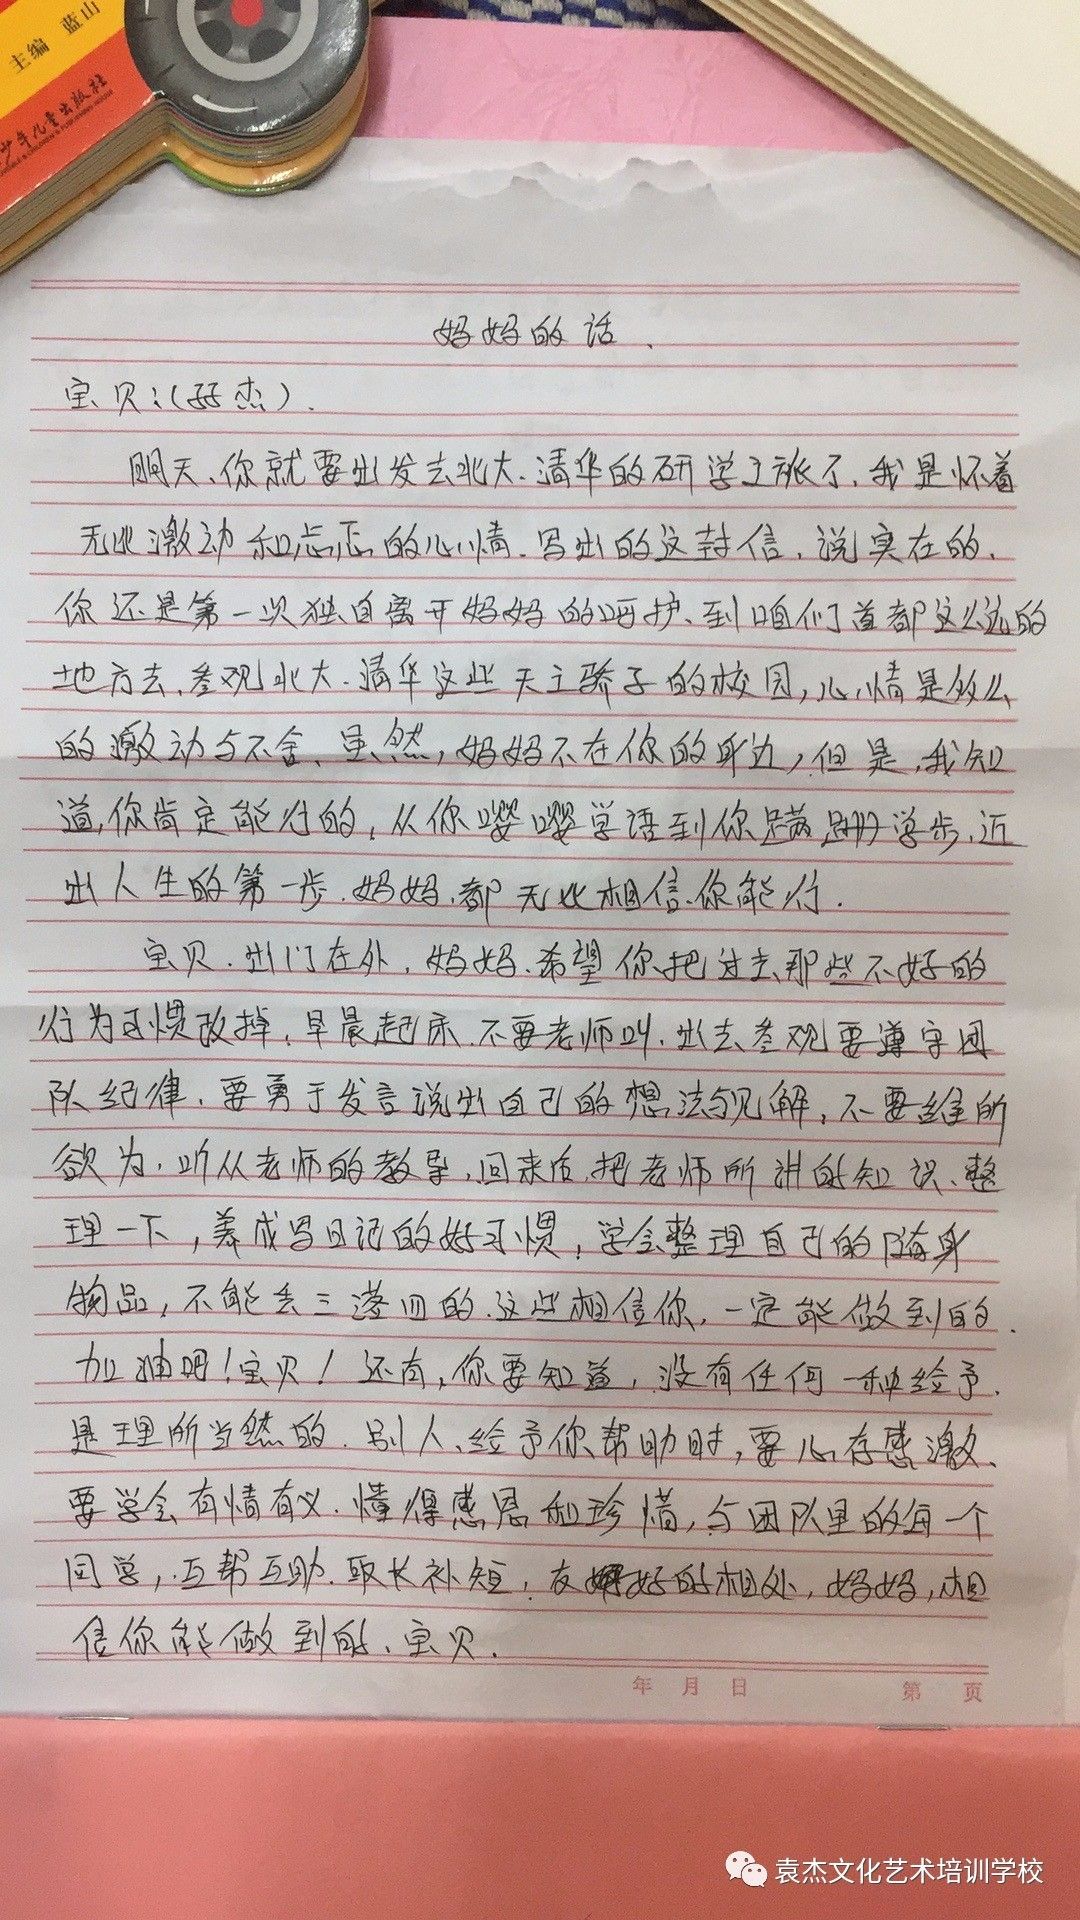 主编 蓝山
少年儿童出版社
妈妈的话.
宝贝:(好杰).
明天、你就要出发去北大.清华的研学之旅了.我是怀着
无比激动和忐忑的心情.写出的这封信.说实在的.
你还是第一次独自离开妈妈的呵护、到咱们首都这么远的
地方去.参观北大.清华这些天之骄子的校园,心情是多么
的激动与不舍、虽然,妈妈不在你的身边,但是,我知
道,你肯定能行的,从你嘤嘤学语到你蹒跚学步,迈
出人生的第一步.妈妈.都无比相信.你能行.
宝贝.出门在外.妈妈、希望你把过去那些不好的
行为习惯改掉,早晨起床.不要老师叫.出去参观要遵守团
队纪律.要勇于发言说出自己的想法与见解,不要维所
欲为.听从老师的教导,回来后.把老师所讲的知识、整
理一下,养成写日记的好习惯,学会整理自己的随身
物品,不能丢三落四的.这些相信你.一定能做到的.
加油吧!宝贝!还有,你要知道,没有任何一种给予.
是理所当然的.别人、给予你帮助时,要心存感激、
要学会有情有义.懂得感恩和珍惜,与团队里的每一个
同学,互帮互助.取长补短,友好的相处,妈妈,相
信你能做到的、宝贝.
年 月 日 第 页
袁杰文化艺术培训学校